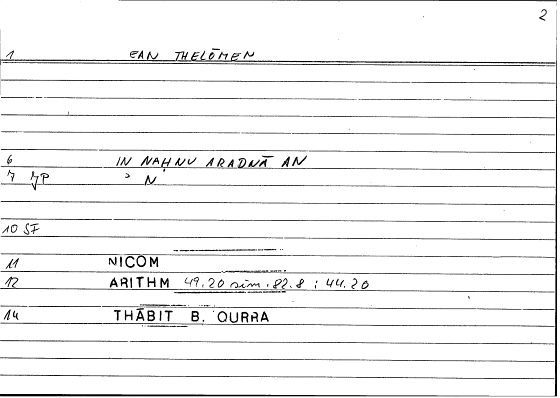 2
1 EAN THELŌMEN
6 IN NAḤNU ARADNĀ AN
7 JP ʾ N
10 SF
11 NICOM
12 ARITHM 49.20 sim. 82.8 ; 44.20
14 THĀBIT B. QURRA